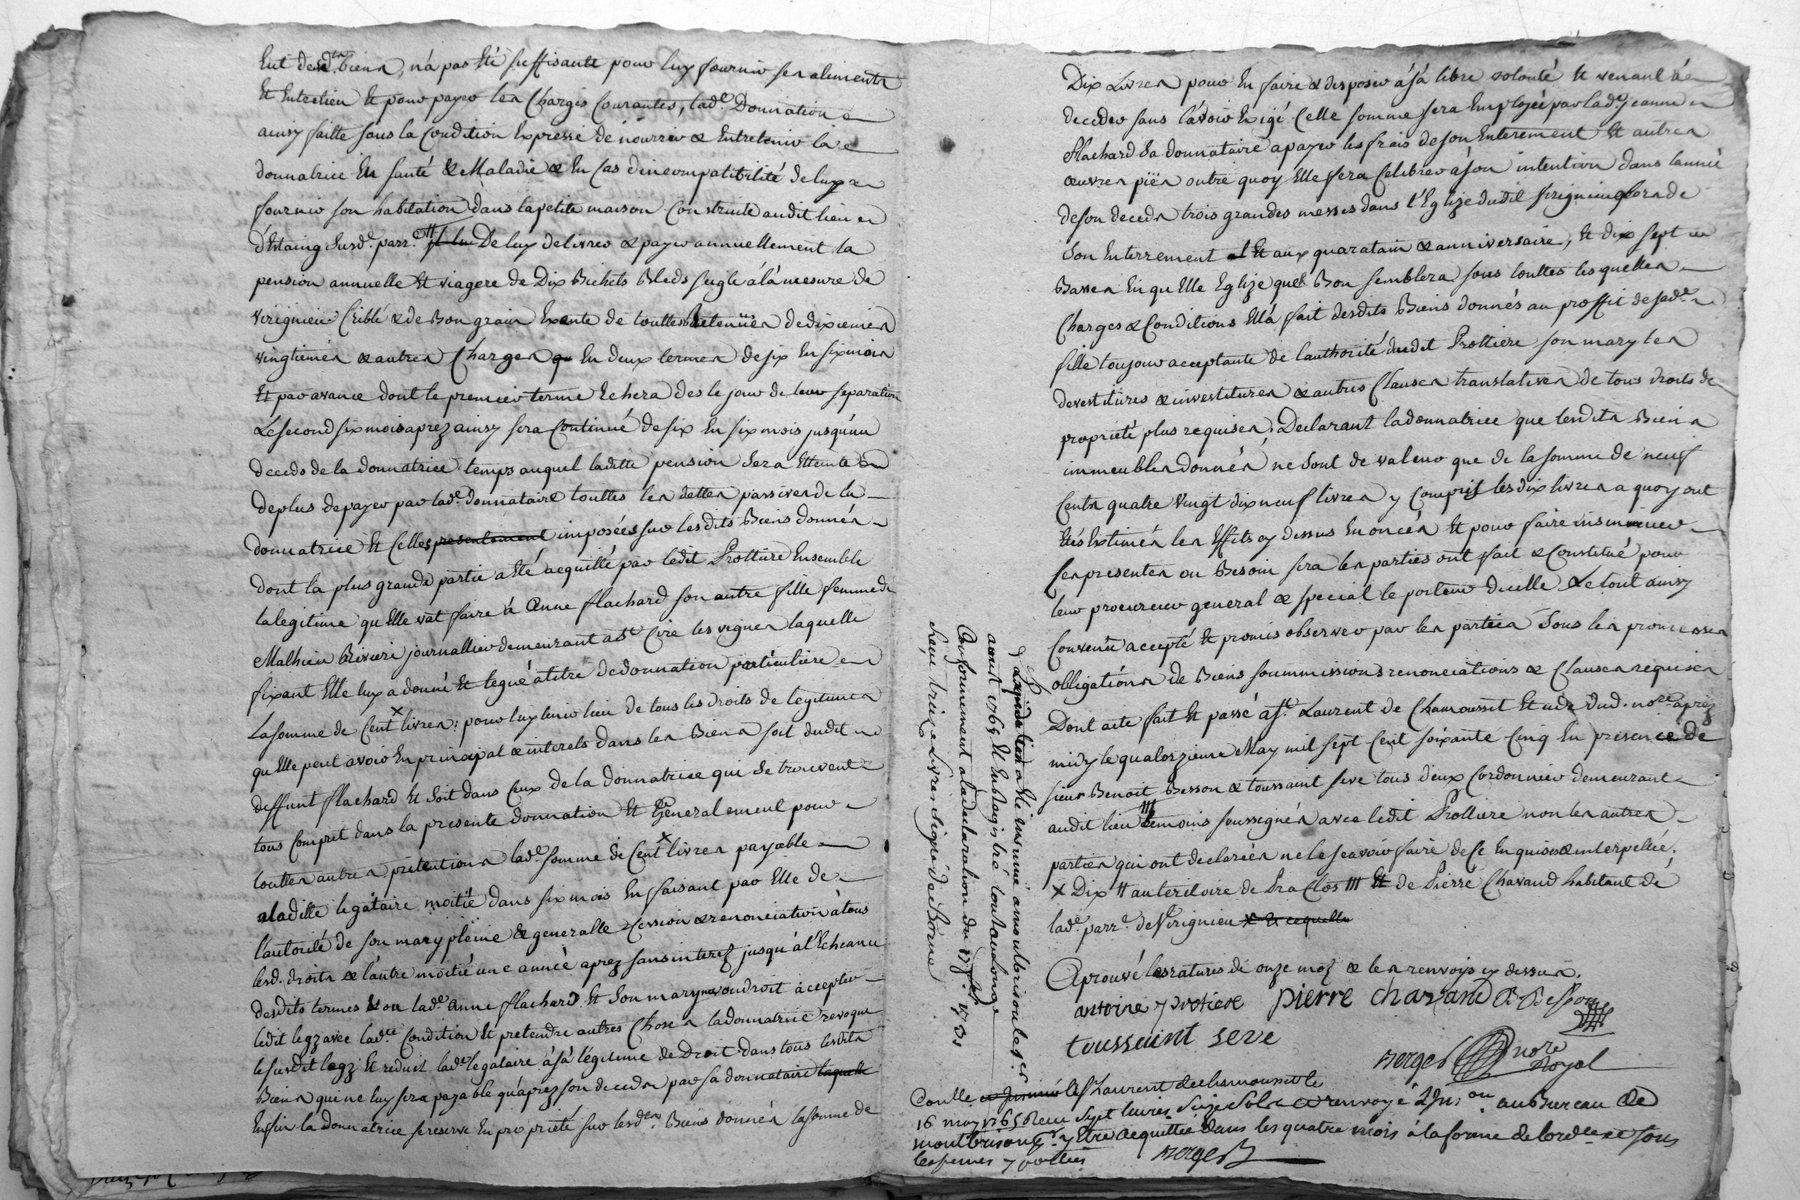 Eut desdts biens, n'a pas Eté suffisante pour luy fournir ses aliments
Et Entretien Et pour payer les Charges Courantes, lade. Donnation
ainsy faitte sous la Condition Expresse de nourrir & Entretenir la
donnatrice En santé & Maladie & En Cas d'incompatibilité de luy
fournir son habitation dans la petite maison Construite audit lieu
d'Estaing susde. parr. De luy delivrer & payer annuellement la
pension annuelle Et viagere de Dix Bichets Bleds seigle á lá mesure de
virignieu Criblé & de Bon grain Exente de touttes Retenües de dixiemes
vingtiemes & autres Charges En deux termes de six En six mois
Et par avance dont le premier terme Echera des le jour de leur separation
Le second six mois aprez ainsy sera Continué de six En six mois jusqu'au
decedo de la donnatrice temps auquel laditte pension sera Etteinte
de plus de payer par lade. donnataire touttes les dettes passives de la
donnatrice Et Celles presentement imposées sur lesdits Biens donnés
dont la plus grande partie a Eté acquitté par ledit Prottiere Ensemble
la legitime qu'Elle vat faire á Anne flachard son autre fille femme de
Mathieu Riviere journallier demeurant a st Cire les vignes laquelle
fixant Elle luy a donné Et legué á titre de donnation particuliere
La somme de Cent x livres: pour luy tenir lieu de tous les droits de legitimes
qu'Elle peut avoir En principal & interets dans les Biens soit dudit
deffunt flachard Et soit dans Ceux de la donnatrice qui se trouvent
tous Compret dans la presente donnation Et Generalement pour
touttes autres pretentions lade. somme de Cent x livres payable
a laditte legataire moitié dans six mois En faisant par Elle de
l'autorité de son mary pleine & generalle Cession & renonciation á tous
lesd. droits & l'autre moitié une année aprez sans interez jusqu'á l'Echeance
desdits termes & ou lade. Anne flachard Et son mary ne voudroit accepter
ledit legz avec lade. Condition Et pretendre autres Choses la donnatrice revoque
le susdit legz Et reduit lade. legataire á sá légitime de Droit dans tous lesdits
Biens qui ne luy sera payable qu'aprez son decedo par sa donnataire laquelle
Enfin la donnatrice se reserve En propriété sur lesds. Biens donnés la somme de
Dix Livres pour En faire & disposer á sá libre volonté Et venant á
deceder sans l'avoir Exigé Celle somme sera Employée par lade. jeanne
flachard Sa donnataire a payer les frais de son Enterement Et autres
œuvres piës outre quoy Elle fera Celebrer á son intention dans l'année
de son decedo trois grandes messes dans l'Eglize dudit Virignieu lors de
son Enterrement Et aux quaratain & anniversaire, Et dix sept
Basses En qu'Elle Eglize que Bon semblera sous touttes lesquelles
Charges & Conditions Ella fait desdits Biens donnés au proffit de sade.
fille toujour acceptante de l'authorité dudit Prottiere son mary les
devestitures & investitures & autres Clauses translatives de tous droits de
proprieté plus requises. Declarant la donnatrice que lesdits Biens
immeubles donnés ne sont de valeur que de la somme de neuf
Cents quatre vingt dix neuf livres y Compris les dix livres a quoy ont
Etés Estimés les Effets cy dessus Enoncés Et pour faire insinuer
les presentes ou Besoin sera les parties ont fait & Constitué pour
leur procureur general & special le porteur d'icelle & le tout ainsy
Convenu accepté Et promis observer par les parties sous les promesses
obligations de Biens soummissions renonciations & Clauses requises
Dont acte fait Et passé á st. Laurent de Chamousset Etude dud. nore. aprez
midy le quatorzieme May mil sept Cent soixante Cinq En presence de
sieur Benoit Besson & toussaint seve tous deux Cordonnier demeurant
audit lieu temoins soussignés avec ledit Prottiere non les autres
parties qui ont declarées ne le scavoir faire de Ce Enquise & interpellée.
x Dix # au teritoire de Pra Clos ## Et de Pierre Chavand habitant de
lade. parr. de Virignieu x & cequelle
Aprouvé les ratures de onze mos & les renvoys cy dessus.
antoine protiere pierre chavand B Besson
toussaint seve
norger nore Royal
Conlle a st Laurent de chamousset le
16 may 1765 Receu sept livres Seize Sols renvoyé au Bureau de
montbrison y Etre acquittée dans les quatre mois á la forme de lordce sous
les peines y portées
norger
L'expedition a Eté insinué a montbrison le
aoust 1765 Et Enregistré tout au long
Conformement a la declaration du 17 fer. 1731
Reçu treize livres signé de Borne